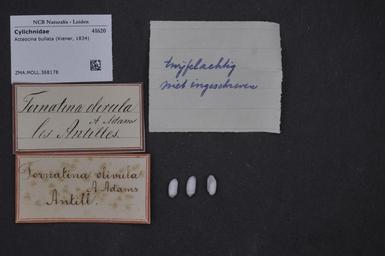 NCB Naturalis - Leiden
Cylichnidae 41620
Acteocina bullata (Kiener, 1834)
ZMA.MOLL.368178
Twijfelachtig
niet ingeschreven
Tornatina olivula
A Adams
les Antilles.
Tornatina olivula
A Adams
Antill.